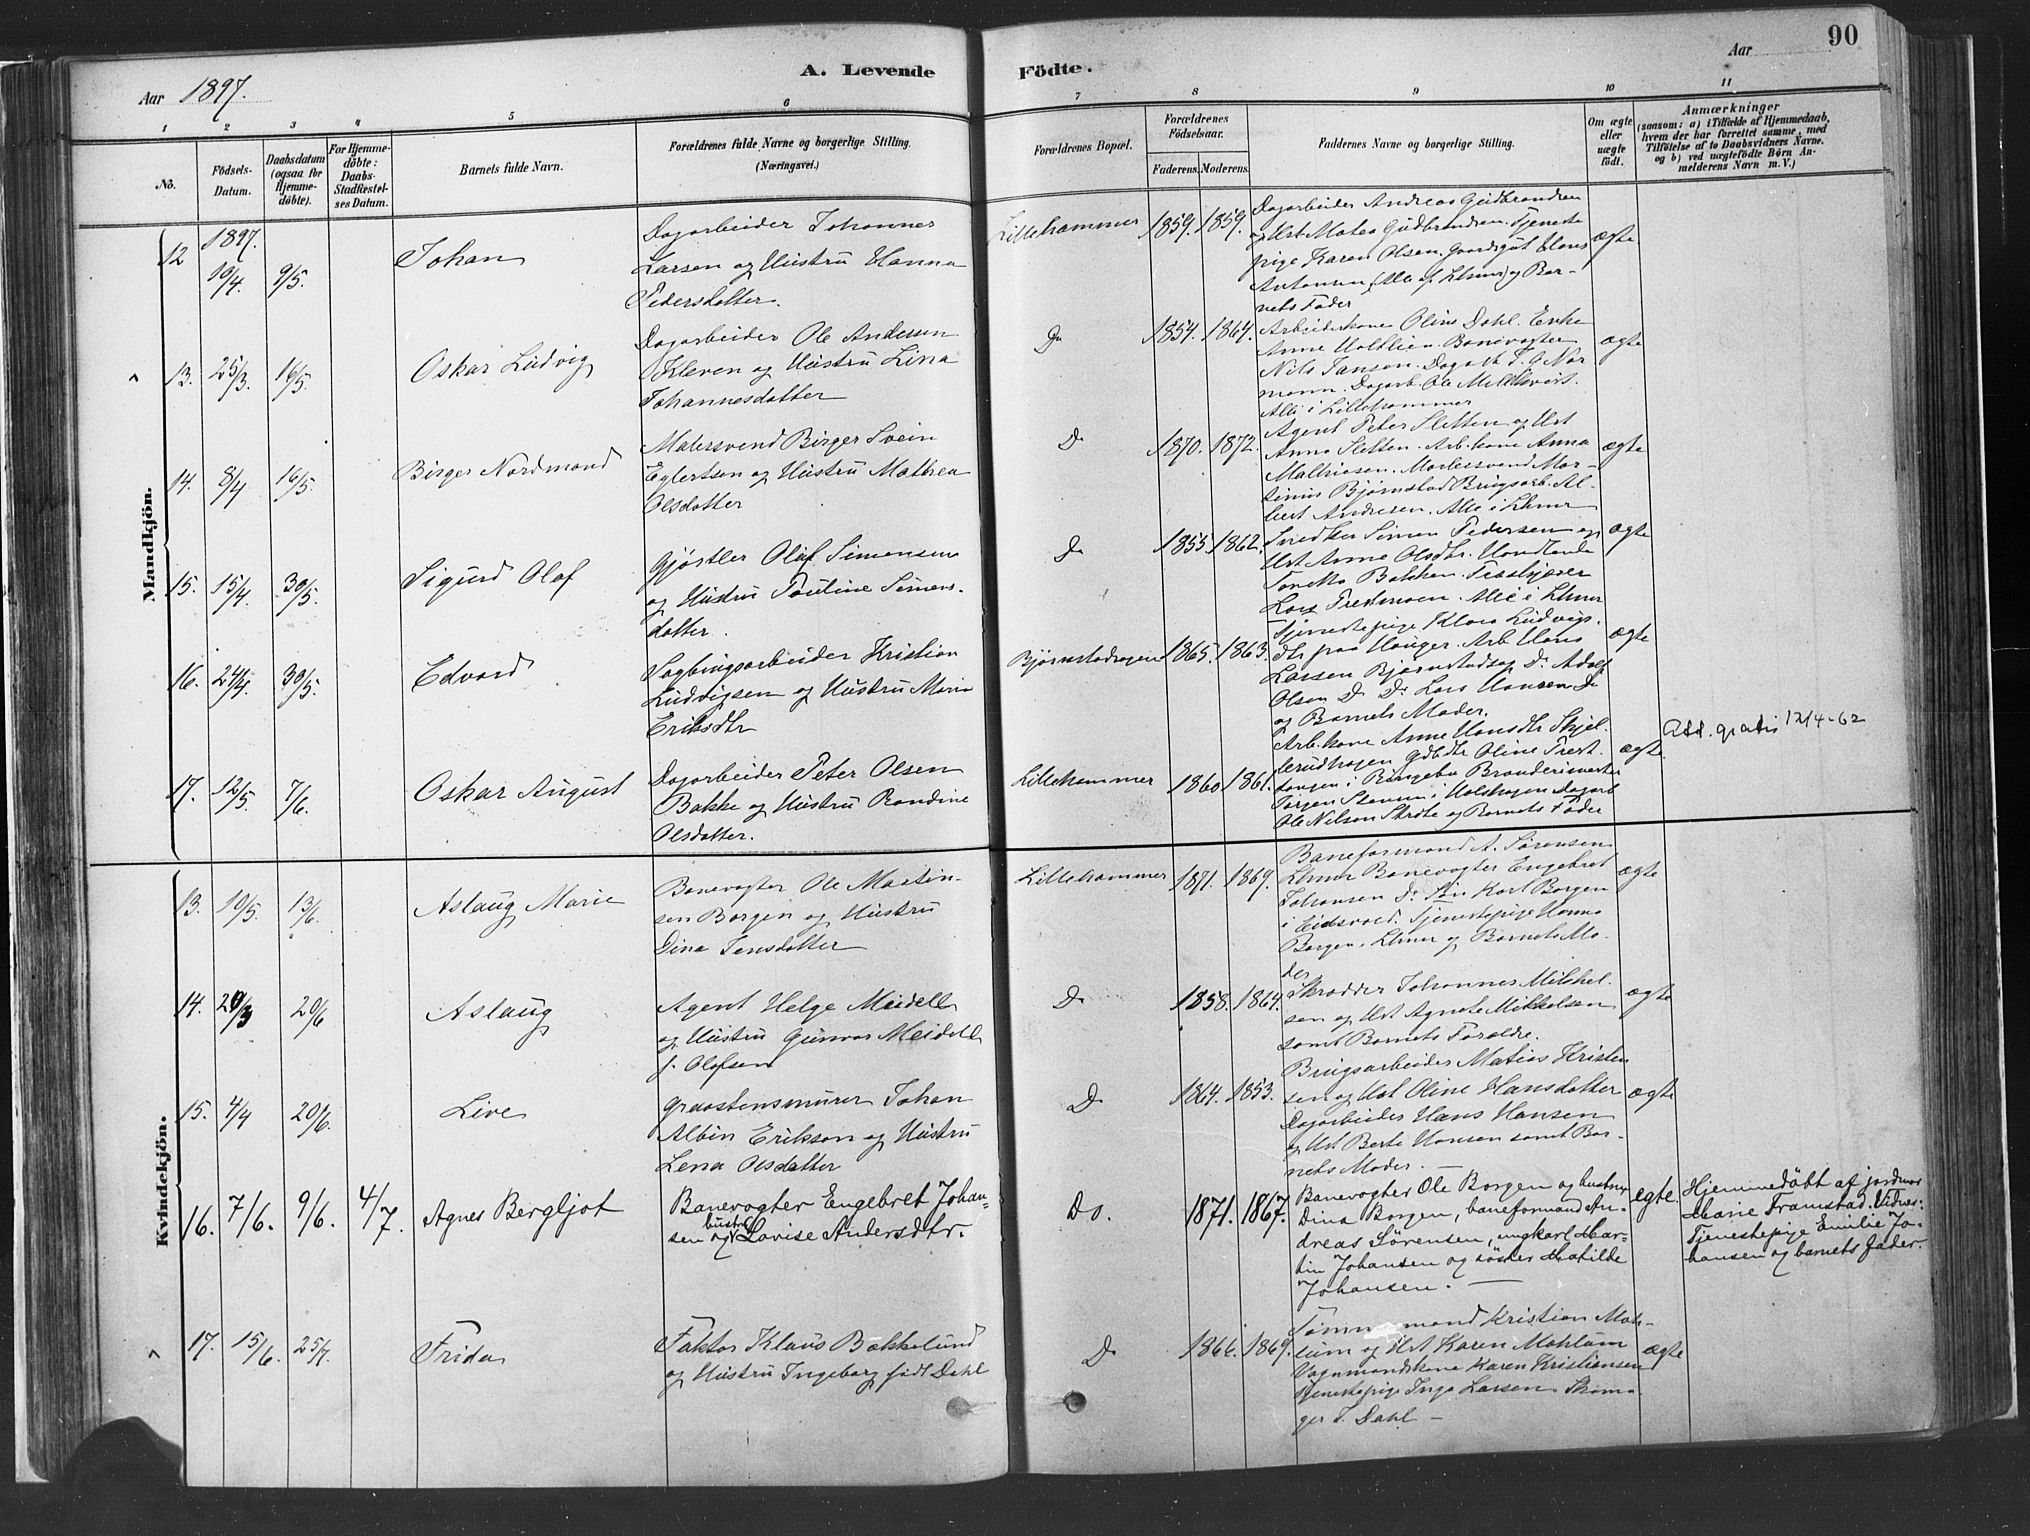 90
Aar 1897.
A. Levende Födte.
Aar
1 2 3 4 5 6 7 8 9 10 11
No.
Födsels-Datum.
Daabsdatum (ogsaa for Hjemme-döbte).
For Hjemme-döbte: Daabs-Stadfæstel-ses Datum.
Barnets fulde Navn.
Forældrenes fulde Navne og borgerlige Stilling.
(Næringsvei.)
Forældrenes Bopæl.
Forældrenes Födselsaar.
Faderens. Moderens.
Faddernes Navne og borgerlige Stilling.
Om ægte eller uægte födt.
Anmærkninger
(saasom: a) i Tilfælde af Hjemmedaab, hvem der har forrettet samme, med Tilföielse af to Daabsvidners Navne, og b) ved uægtefödte Börn Anmelderens Navn m. V.)
Mandkjön.
12 1897. 10/4 9/5. Johan
Dagarbeider Johannes
Larsen og Hustru Hanna
Pedersdatter.
Lillehammer 1859. 1859.
Dagarbeider Andreas Gudbrandsen
og Hst Mathea Gudbrandsen. Tjeneste
pige Karen Olsen. Gaardsgut Hans
Antonsen (Alle af Lhmr) og Bar-
nets Fader
ægte
13. 25/3. 16/5. Oskar Ludvig
Dagarbeider Ole Andersen
Kleven og Hustru Lina
Johannesdatter
Do 1854. 1864.
Arbeiderkone Oline Dahl. Enke
Anne Holtlien. Banevogter
Nils Jansen. Dagarb J. G. Nor
mann. Dagarb. Ole
Alle i Lillehammer
ægte
14. 8/4 16/5. Birger Nordmand
Malersvend Birger Svein
Eglertsen og Hustru Mathea
Olsdatter
Do 1870. 1872.
Agent Peter Sletten og Hst
Anna Sletten. Arb.kone Anna
Mathiesen. Malersvend Mar-
tinius Bjørnstad Brugsarb. Al-
bert Andresen. Alle i Lhmr
ægte
15. 15/4. 30/5. Sigurd Olaf
Gjørtler Olaf Simensen
og Hustru Pauline Simens.
datter.
Do 1855. 1862.
Snedker Simen Pedersen og
Hst Anne Olsdtr. Handlende
Tonetta Bakken.
Lars Alle i Lhmr
ægte
16. 24/4. 30/5. Edvard
Sagbrugsarbeider Kristian
Ludvigsen og Hustru Marie
Eriksdtr
Bjørnstadhagen 1865. 1863.
Tjenestepige Klara Ludvigs.
dtr paa Hauger. Arb Hans
Larsen Bjørnstadhag. Do Adolf
Olsen Do Do Lars Hansen Do
og Barnets Moder.
ægte
17. 12/5. 7/6. Oskar August
Dagarbeider Peter Olsen
Bakke og Hustru Randine
Olsdatter.
Lillehammer 1860 1861.
Arb.kone Anne Hansdtr Skjel-
lerudhagen Gdbdtr Oline Prest.
i Ringebu
Jørgen Stensen i Dagarb
Ole Nilsen og Barnets Fader
ægte
Att. gratis 12/4-62
Kvindekjön.
13. 10/5. 13/6. Aslaug Marie
Banevogter Ole Martin-
sen Borgen og Hustru
Dina Jensdatter
Lillehammer 1871. 1869.
Baneformand A. Sørensen
Lhmr Banevogter Engebret
Johansen Do Karl Borgen
i Eidsvold. Tjenestepige Hanna
Borgen, Lhmr og Barnets Mo-
der
ægte
14. 29/3 20/6 Aslaug
Agent Helge Meidell
og Hustru Gunvor Meidell
f. Olafsen
Do 1858. 1864.
Skrædder Johannes Mikkel-
sen og Hst Agnete Mikkelsen
samt Barnets Forældre.
ægte
15. 4/4 20/6. Live
Graastensmurer Johan
Albin Erikson og Hustru
Lena Olsdatter
Do 1864. 1853.
Brugsarbeider Matias Kristen
sen og Hst Oline Hansdatter
Dagarbeider Hans Hansen
og Hst Berte Hansen samt Bar-
nets Moder.
ægte
16. 7/6. 9/6. 4/7. Agnes Bergljot
Banevogter Engebret Johan-
sen og hustru Lovise Andersdtr.
Do. 1871. 1867.
Banevogter Ole Borgen og hustru
Dina Borgen, baneformand An-
dreas Sørensen, ungkarl Mar-
tin Johansen og søster Matilde
Johansen.
ægte.
Hjemmedøbt af jordmor
Marie Framstad. Vidner:
Tjenestepige Emilie Jo-
hansen og barnets fader.
17. 15/6. 25/7. Frida
Faktor Klaus Bækkelund
og Hustru Ingeborg født Dahl
Do 1866. 1869.
mand Kristian Moh-
lum og Hst Karen Mohlum
Vognmandskone Karen Kristiansen
tjenestepige Inga Larsen Skoma
ger J. Dahl
ægte